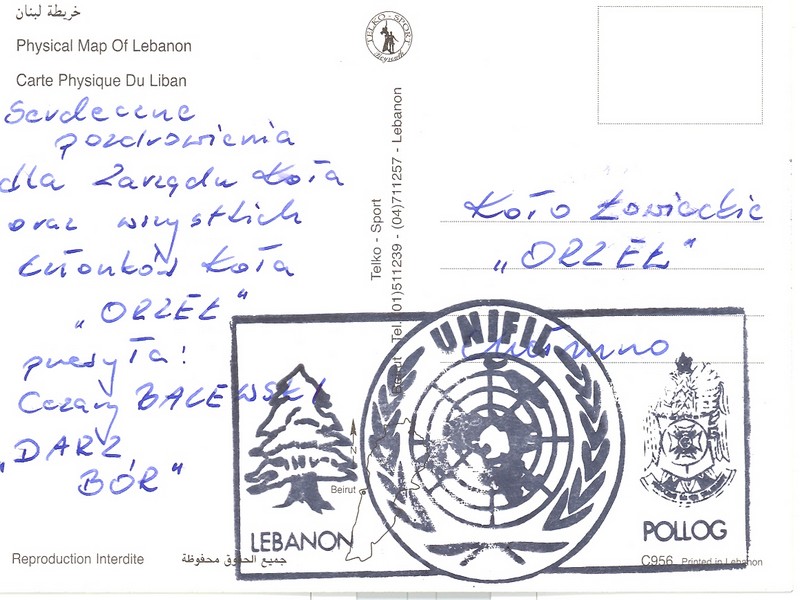 خريطة لبنان
Physical Map Of Lebanon
Carte Physique Du Liban
Serdeczne
pozdrowienia
dla Zarządu Koła
oraz wszystkich
członków Koła
„ORZEŁ"
przesyła!
Cezary BALEWSKI
„DARZ
BÓR"
Reproduction Interdite
جميع الحقوق محفوظة
TELKO - SPORT
Telko - Sport
Beirut - Tel. (01)511239 - (04)711257 - Lebanon
Koło Łowieckie
„ORZEŁ"
Chełmno
UNIFIL
N
Beirut
LEBANON
POLLOG
C956 Printed in Lebanon